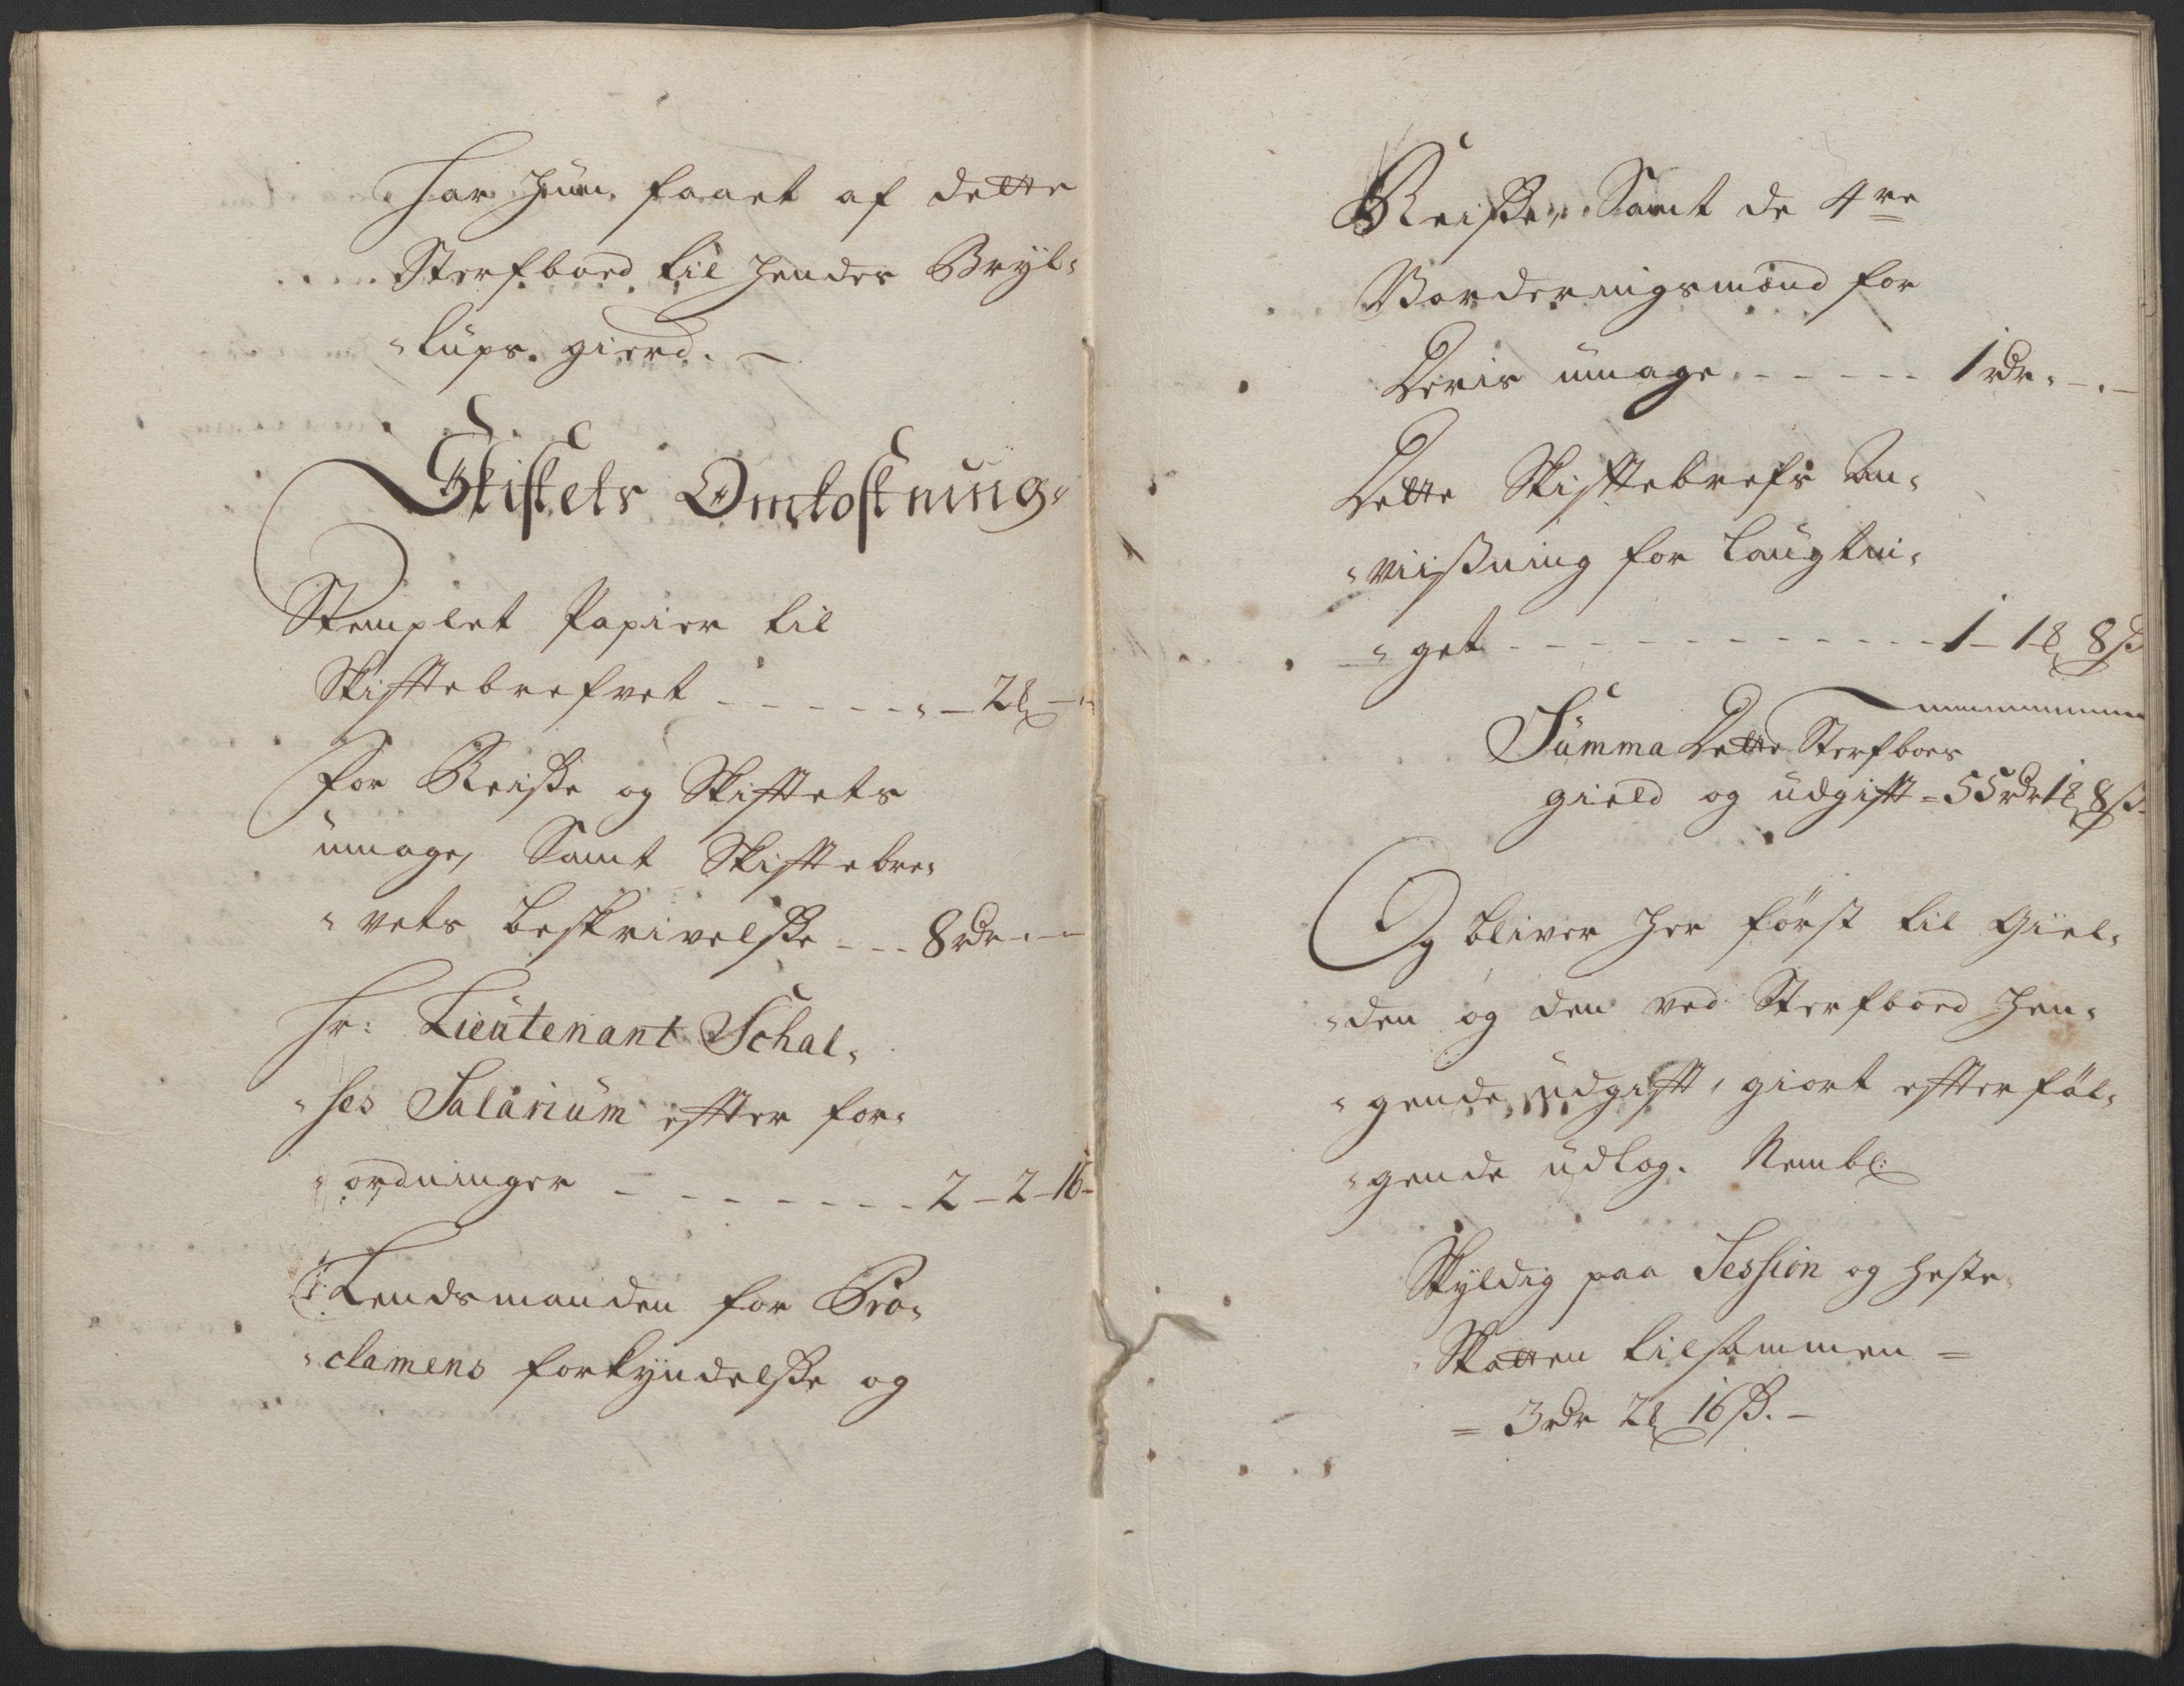 har hun faaet af dette
Sterfboed til hendes Bryl¬
lups gierd. —
Skiftets Omkostning.
Stemplet Papier til
Skifttebrefvet - - - - - - 2 ℔ -
For Reiße og Skifttets
umage, Samt Skifttebre¬
vets beskrivelße - - - 8 rdr - -
Hr: Lieutenant Schal¬
ses Salarium effter for¬
ordninger - - - - - - - - 2 - 2 - 16 -
Lendsmanden for Pro¬
clamens forkyndelße og
Reiße, Samt de 4re
Vorderingsmænd for
Deris umage - - - - - 1 rdr. - . -
Dette Skifttebrefs An¬
viißning for Laugtin¬
get - - - - - - - - - - - - 1 - 1 ℔ 8 ß
Summa Dette Sterfboes
gield og udgifft = 55 rdr 1 ℔ 8 ß
Og bliver her först til Giel¬
den og den ved Sterfboed hen¬
gende udgifft, giort effterföl¬
gende udlog. Nembl:
Skyldig paa Session og heste
Skatten tilsammen =
= 3 rdr 2 ℔ 16 ß. -